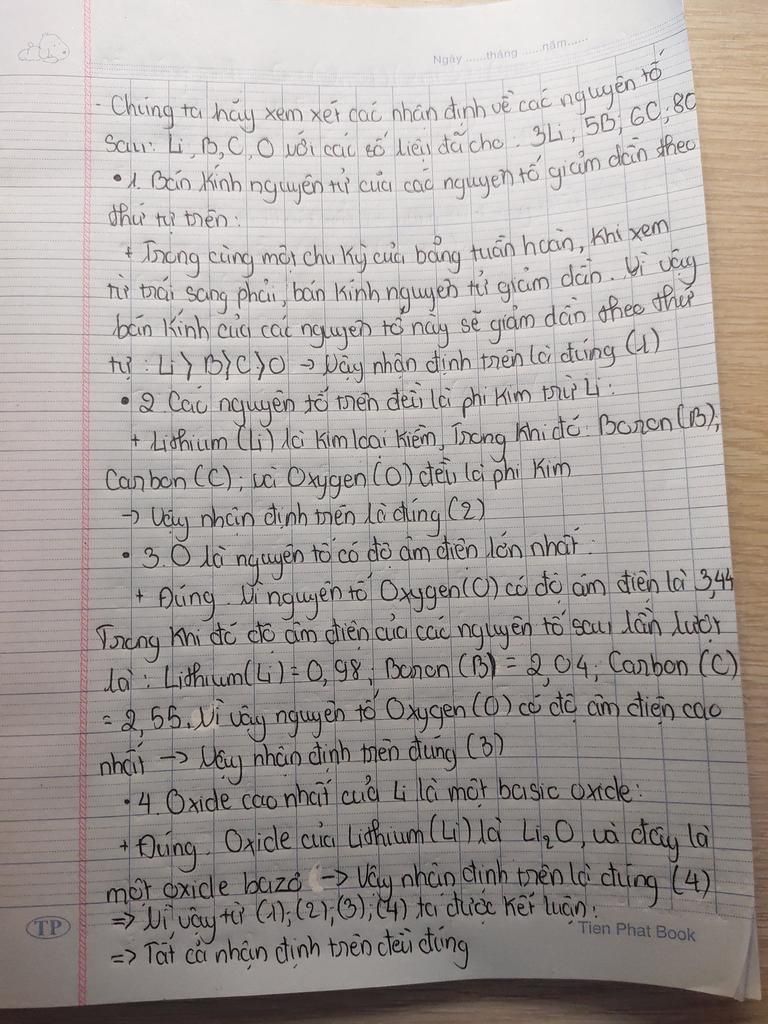 Ngày ......tháng ......năm......
- Chúng ta hãy xem xét các nhận định về các nguyên tố
sau: Li, B, C, O với các số liệu đã cho: 3Li; 5B; 6C; 8O
• 1. Bán kính nguyên tử của các nguyên tố giảm dần theo
thứ tự trên:
+ Trong cùng một chu kỳ của bảng tuần hoàn, khi xem
từ trái sang phải, bán kính nguyên tử giảm dần. Vì vậy
bán kính của các nguyên tố này sẽ giảm dần theo thứ
tự: Li > B > C > O → Vậy nhận định trên là đúng (1)
• 2. Các nguyên tố trên đều là phi kim trừ Li:
+ Lithium (Li) là kim loại kiềm, Trong khi đó: Boron (B);
Carbon (C); và Oxygen (O) đều là phi kim
→ Vậy nhận định trên là đúng (2)
• 3. O là nguyên tố có độ âm điện lớn nhất:
+ Đúng. Vì nguyên tố Oxygen (O) có độ âm điện là 3,44
Trong khi đó độ âm điện của các nguyên tố sau lần lượt
là: Lithium (Li) = 0,98; Boron (B) = 2,04; Carbon (C)
= 2,55. Vì vậy nguyên tố Oxygen (O) có độ âm điện cao
nhất → Vậy nhận định trên đúng (3)
• 4. Oxide cao nhất của Li là một basic oxide:
+ Đúng. Oxide của Lithium (Li) là Li2O, và đây là
một oxide bazơ → Vậy nhận định trên là đúng (4)
=> Vì vậy từ (1); (2); (3); (4) ta được kết luận:
=> Tất cả nhận định trên đều đúng
TP
Tien Phat Book